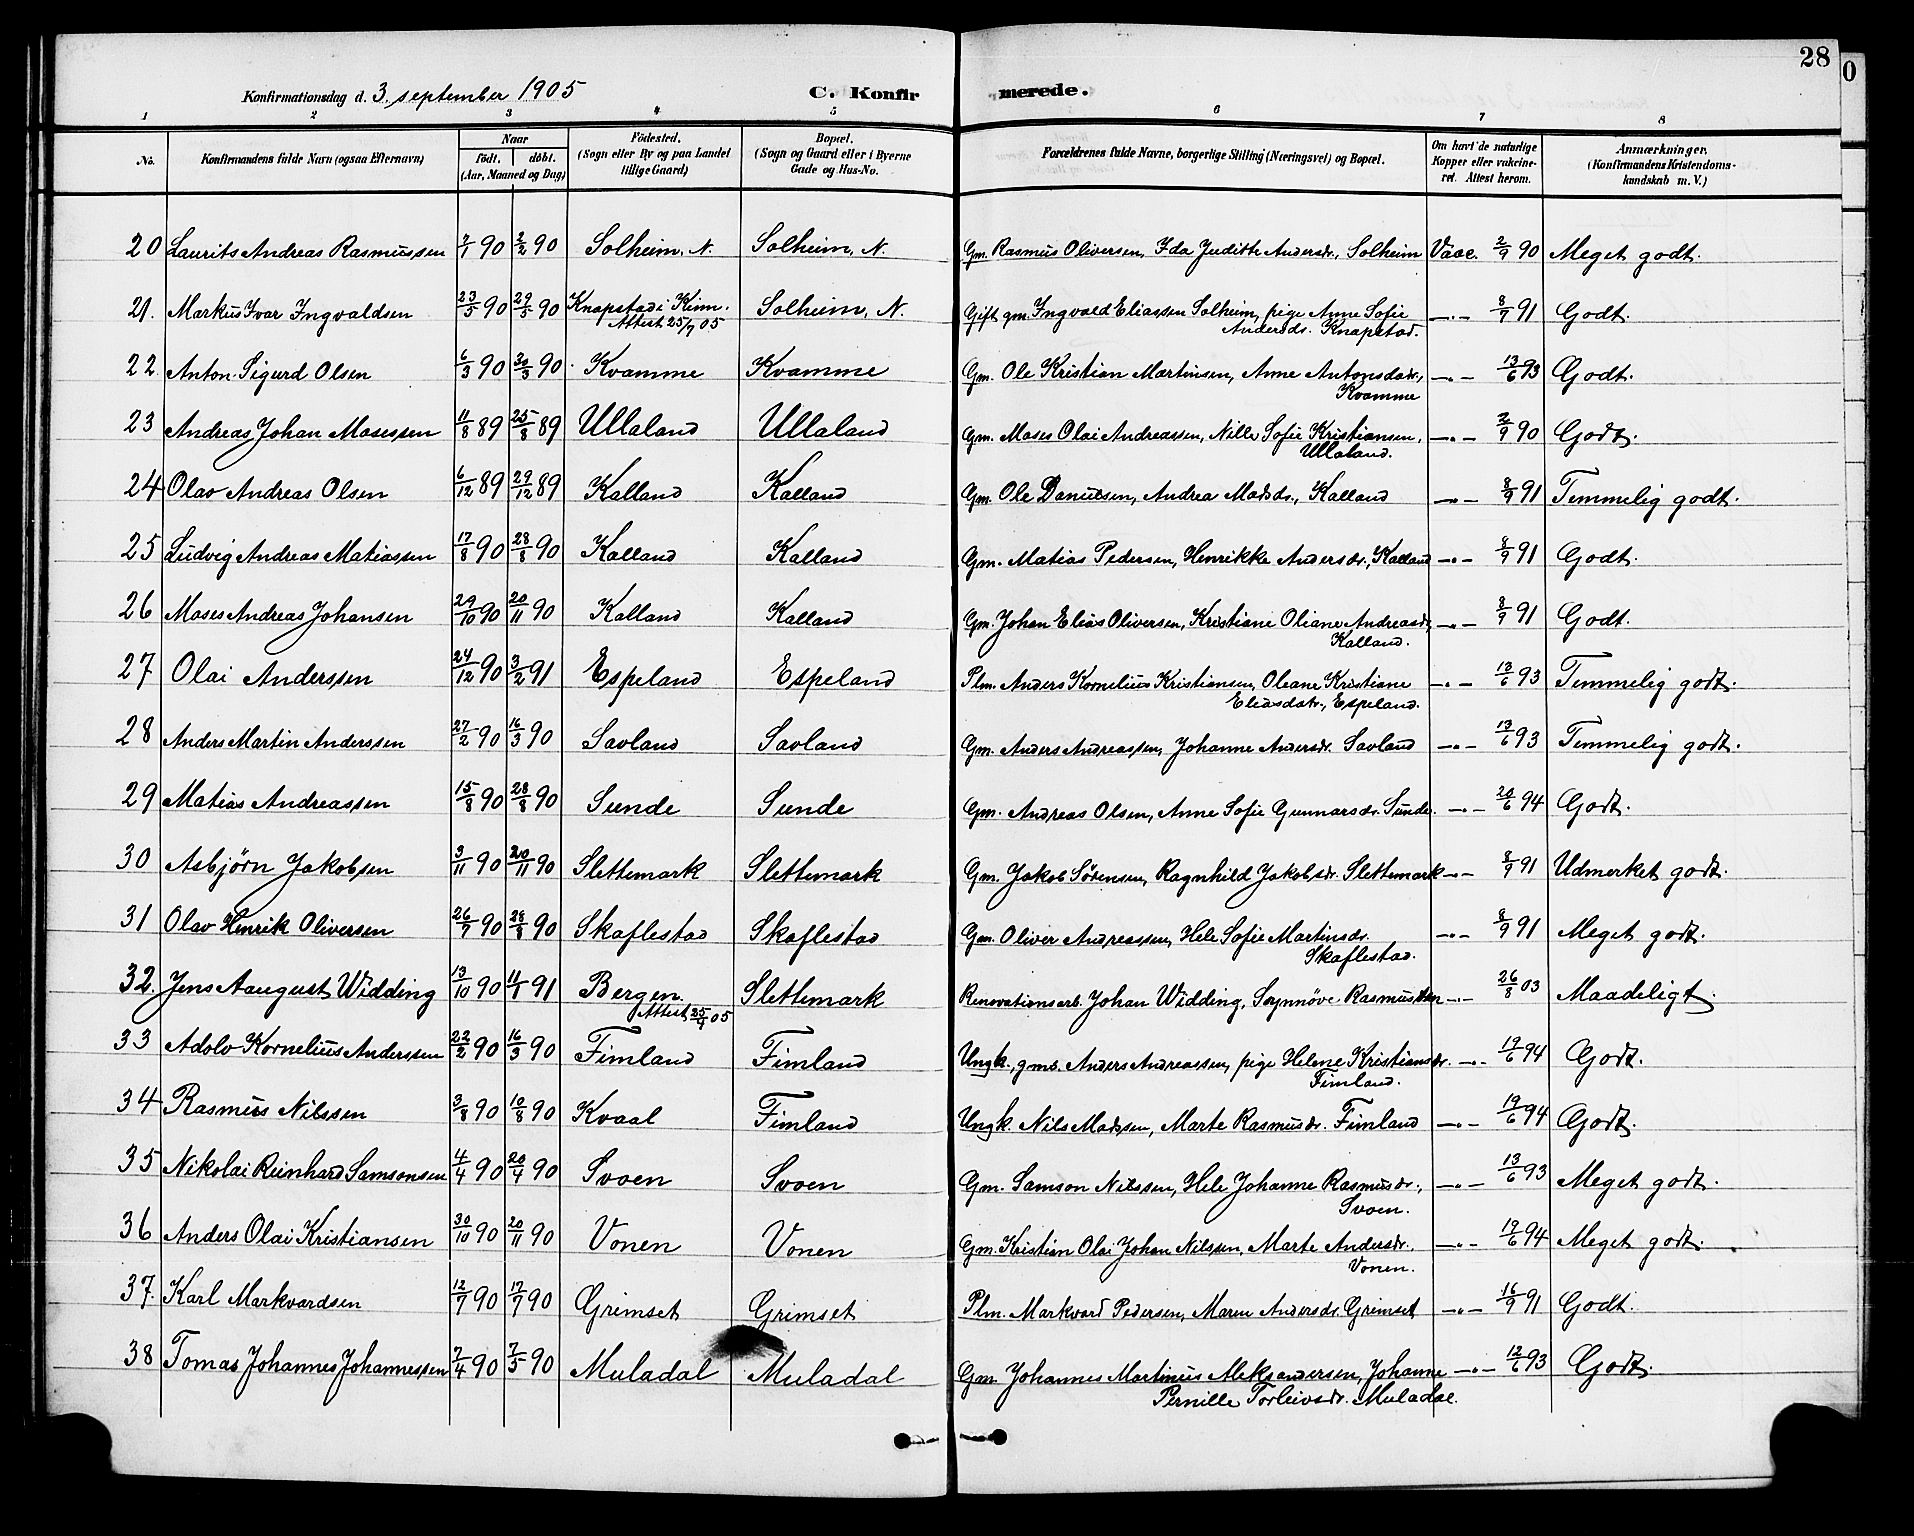 28
0
Konfirmationsdag d. 3. september 1905 C. Konfirmerede.
1 2 3 4 5 6 7 8
No. Konfirmandens fulde Navn (ogsaa Efternavn) Naar født. døbt. (Aar, Maaned og Dag) Fødested. (Sogn eller By og paa Landet tillige Gaard) Bopæl. (Sogn og Gaard eller i Byerne Gade og Hus-No. Forældrenes fulde Navne, borgerlige Stilling (Næringsvei) og Bopæl. Om havt de naturlige Kopper eller vakcineret. Attest herom. Anmærkninger. (Konfirmandens Kristendomskundskab m. V.)
20 Laurits Andreas Rasmussen 7/1 90 2/2 90 Solheim, N. Solheim, N. Gm. Rasmus Oliversen, Ida Juditte Andersdr., Solheim Vacc. 2/9 90 Meget godt.
21. Markus Ivar Ingvaldsen 23/5 90 29/5 90 Knapstad i Kinn. Solheim, N. Gift gm. Ingvald Eliassen Solheim, pige Anne Sofie —"— 8/9 91 Godt.
Attest 25/9 05 Andersdr. Knapstad.
22. Anton Sigurd Olsen 6/3 90 30/3 90 Kvamme Kvamme Gm. Ole Kristian Martinsen, Anne Antonsdatr., —"— 13/6 93 Godt.
Kvamme
23 Andreas Johan Mosessen 11/8 89 25/8 89 Ullaland Ullaland Gm. Moses Olai Andreassen, Nille Sofie Kristiansen, —"— 2/9 90 Godt.
Ullaland.
24 Olav Andreas Olsen 6/12 89 29/12 89 Kalland Kalland Gm. Ole Danielsen, Andrea Madsdr., Kalland —"— 8/9 91 Temmelig godt.
25 Ludvig Andreas Matiassen 17/8 90 28/8 90 Kalland Kalland Gm. Matias Pedersen, Henrikke Andersdr., Kalland —"— 8/9 91 Godt.
26 Moses Andreas Johansen 29/10 90 20/11 90 Kalland Kalland Gm. Johan Elias Oliversen, Kristiane Oliane Andreasdr., —"— 8/9 91 Godt.
Kalland.
27 Olai Anderssen 24/12 90 3/2 91 Espeland Espeland Plm. Anders Kornelius Kristiansen, Oleane Kristiane —"— 13/6 93 Temmelig godt.
Eliasdatr., Espeland.
28 Anders Martin Anderssen 27/2 90 16/3 90 Savland Savland Gm. Anders Andreassen, Johanne Andersdr. Savland —"— 13/6 93 Temmelig godt.
29 Matias Andreassen 15/8 90 28/8 90 Sunde Sunde Gm. Andreas Olsen, Anne Sofie Gunnarsdr. Sunde. —"— 20/6 94 Godt.
30 Asbjørn Jakobsen 3/11 90 20/11 90 Slettemark Slettemark Gm. Jakob Sørensen, Ragnhild Jakobsdr. Slettemark —"— 8/9 91 Udmerket godt.
31 Olav Henrik Oliversen 26/7 90 28/8 90 Skaflestad Skaflestad Gm. Oliver Andreassen, Hele Sofie Martinsdr. —"— 8/9 91 Meget godt.
Skaflestad.
32. Jens Aaugust Widding 13/10 90 11/1 91 Bergen. Slettemark Renovationsarb. Johan Widding, Synnøve Rasmussen —"— 26/8 03 Maadeligt.
Attest 25/9 05
33 Adolv Kornelius Anderssen 22/2 90 16/3 90 Fimland Fimland Ungk., gms. Anders Andreassen, pige Helene Kristiansdr. —"— 19/6 94 Godt.
Fimland.
34 Rasmus Nilssen 3/8 90 10/8 90 Kvaal Fimland Ungk. Nils Madssen, Marte Rasmusdr. Fimland —"— 19/6 94 Godt.
35 Nikolai Reinhard Samsonsen 4/4 90 20/4 90 Svoen Svoen Gm. Samson Nilssen, Hele Johanne Rasmusdr., —"— 13/6 93 Meget godt.
Svoen.
36 Anders Olai Kristiansen 30/10 90 20/11 90 Vonen Vonen Gm. Kristian Olai Johan Nilssen, Marte Andersdr. —"— 19/6 94 Meget godt.
Vonen.
37. Karl Markvardsen 12/7 90 17/7 90 Grimset Grimset Plm. Markvard Pedersen, Maren Andersdr. Grimset —"— 16/9 91 Godt.
38 Tomas Johannes Johannessen 7/4 90 7/5 90 Muladal Muladal Gm. Johannes Martinus Aleksandersen, Johanne —"— 12/6 93 Godt.
Pernille Torleivsdr. Muladal.